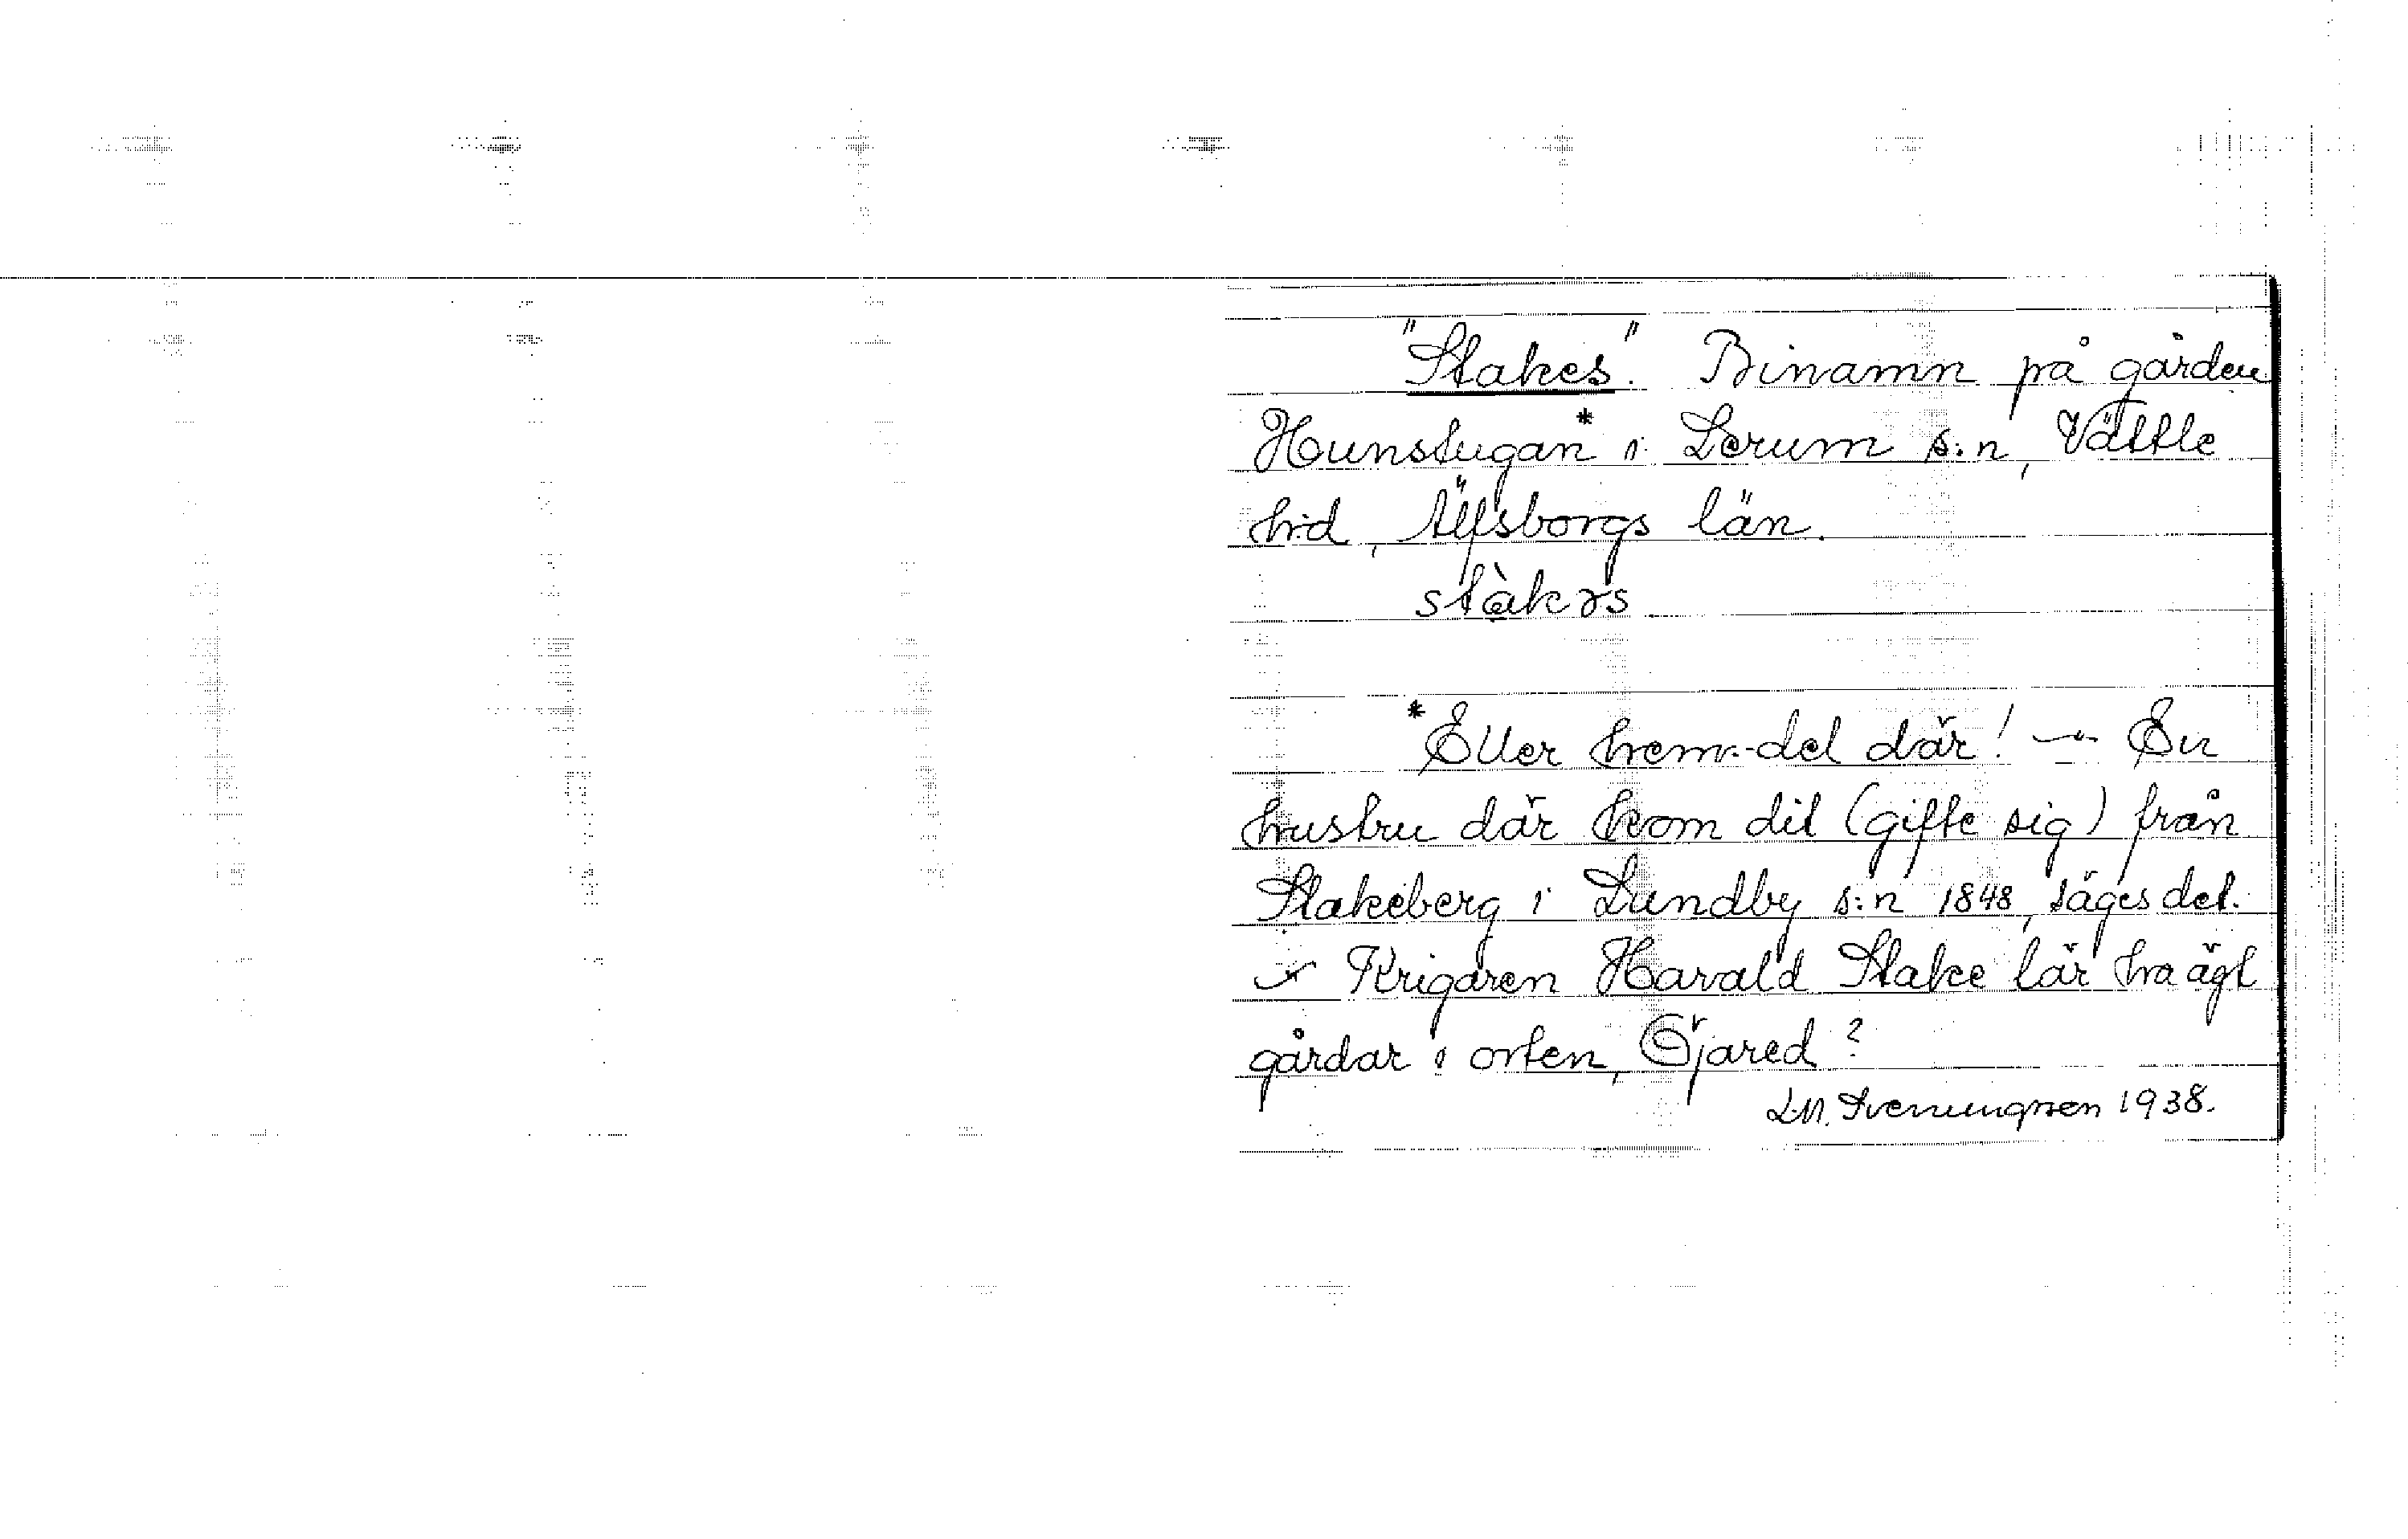 "Stakes". Binamn på gården
Hunstugan* i Lerum s:n, Vättle
h:d, Älfsborgs län.
stàkəs
*Eller hem.-del där! — En
hustru där kom dit (gifte sig) från
Stakeberg i Lundby s:n 1848, säges det.
— Krigaren Harald Stake lär ha ägt
gårdar i orten, Öjared?
L.M. Svenungsson 1938.